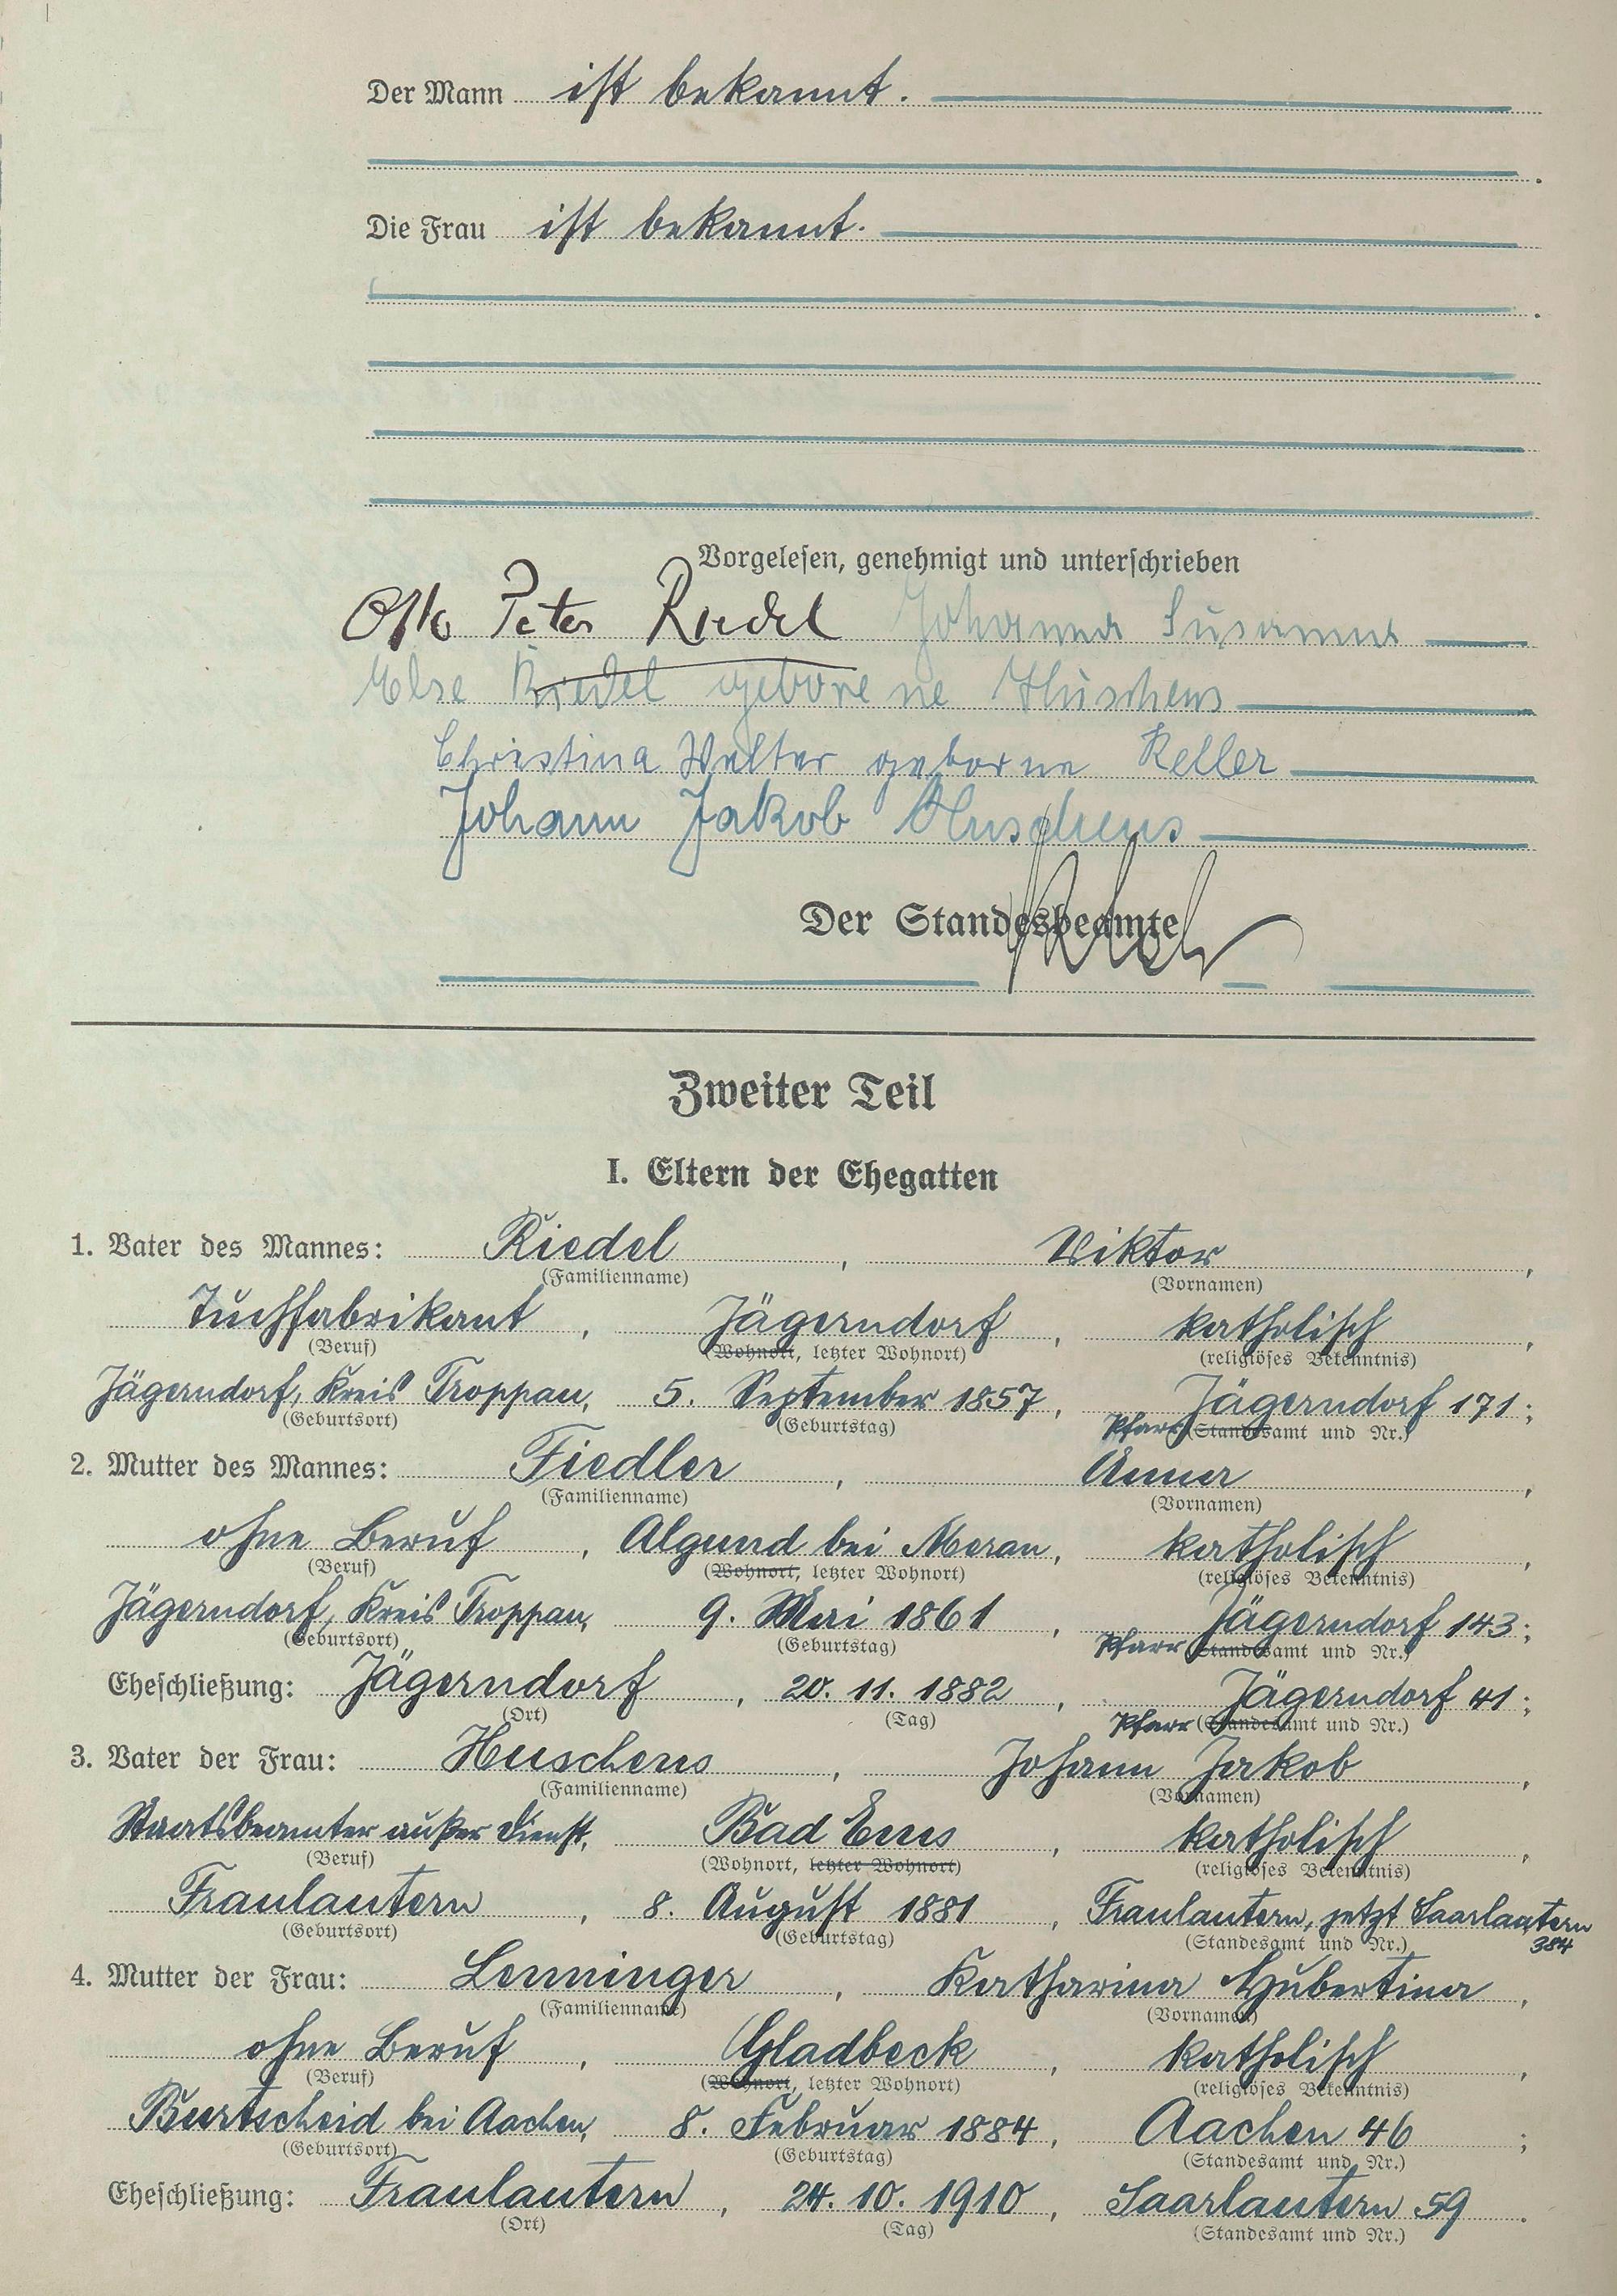 Der Mann ist bekannt.
Die Frau ist bekannt.
Vorgelesen, genehmigt und unterschrieben
Otto Peter Riedel Johanna Susanna
Else Riedel geborene Huschens
Christina Walter geborne Keller
Johann Jakob Huschens
Der Standesbeamte
Zweiter Teil
I. Eltern der Ehegatten
1. Vater des Mannes: Riedel, Viktor,
(Familienname) (Vornamen)
Tuchfabrikant, Jägerndorf, katholisch,
(Beruf) (Wohnort, letzter Wohnort) (religiöses Bekenntnis)
Jägerndorf, Kreis Troppau, 5. September 1857, Jägerndorf 171;
(Geburtsort) (Geburtstag) Pfarr (Standesamt und Nr.)
2. Mutter des Mannes: Fiedler, Anna,
(Familienname) (Vornamen)
ohne Beruf, Algund bei Meran, katholisch,
(Beruf) (Wohnort, letzter Wohnort) (religiöses Bekenntnis)
Jägerndorf, Kreis Troppau, 9. Mai 1861, Jägerndorf 143;
(Geburtsort) (Geburtstag) Pfarr (Standesamt und Nr.)
Eheschließung: Jägerndorf, 20. 11. 1882, Jägerndorf 41;
(Ort) (Tag) Pfarr (Standesamt und Nr.)
3. Vater der Frau: Huschens, Johann Jakob,
(Familienname) (Vornamen)
Staatsbeamter außer Dienst, Bad Ems, katholisch,
(Beruf) (Wohnort, letzter Wohnort) (religiöses Bekenntnis)
Fraulautern, 8. August 1881, Fraulautern, jetzt Saarlautern
(Geburtsort) (Geburtstag) (Standesamt und Nr.) 384
4. Mutter der Frau: Lenninger, Katharina Hubertina,
(Familienname) (Vornamen)
ohne Beruf, Gladbeck, katholisch,
(Beruf) (Wohnort, letzter Wohnort) (religiöses Bekenntnis)
Burtscheid bei Aachen, 8. Februar 1884, Aachen 46;
(Geburtsort) (Geburtstag) (Standesamt und Nr.)
Eheschließung: Fraulautern, 24. 10. 1910, Saarlautern 59.
(Ort) (Tag) (Standesamt und Nr.)